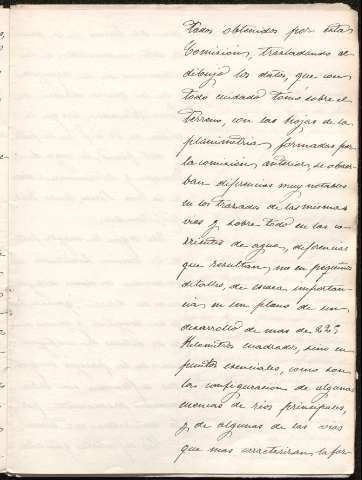 tados obtenidos por esta
Comisión, trasladando al
dibujo los datos, que con
todo cuidado tomó sobre el
terreno, con las hojas de la
planimetria formadas por
la comisión anterior, se obser-
ban diferencias muy notables
en los trazados de las mismas
vias y sobre todo en las co-
rrientes de agua, diferencias
que resultan, no en pequeños
detalles, de escasa importan-
cia en un plano de un
desarrollo de mas de 223
Kilometros cuadrados, sino en
puntos esenciales, como son
la configuracion de algunas
cuencas de rios principales,
y de algunas de las vias
que mas caracterizan la for-